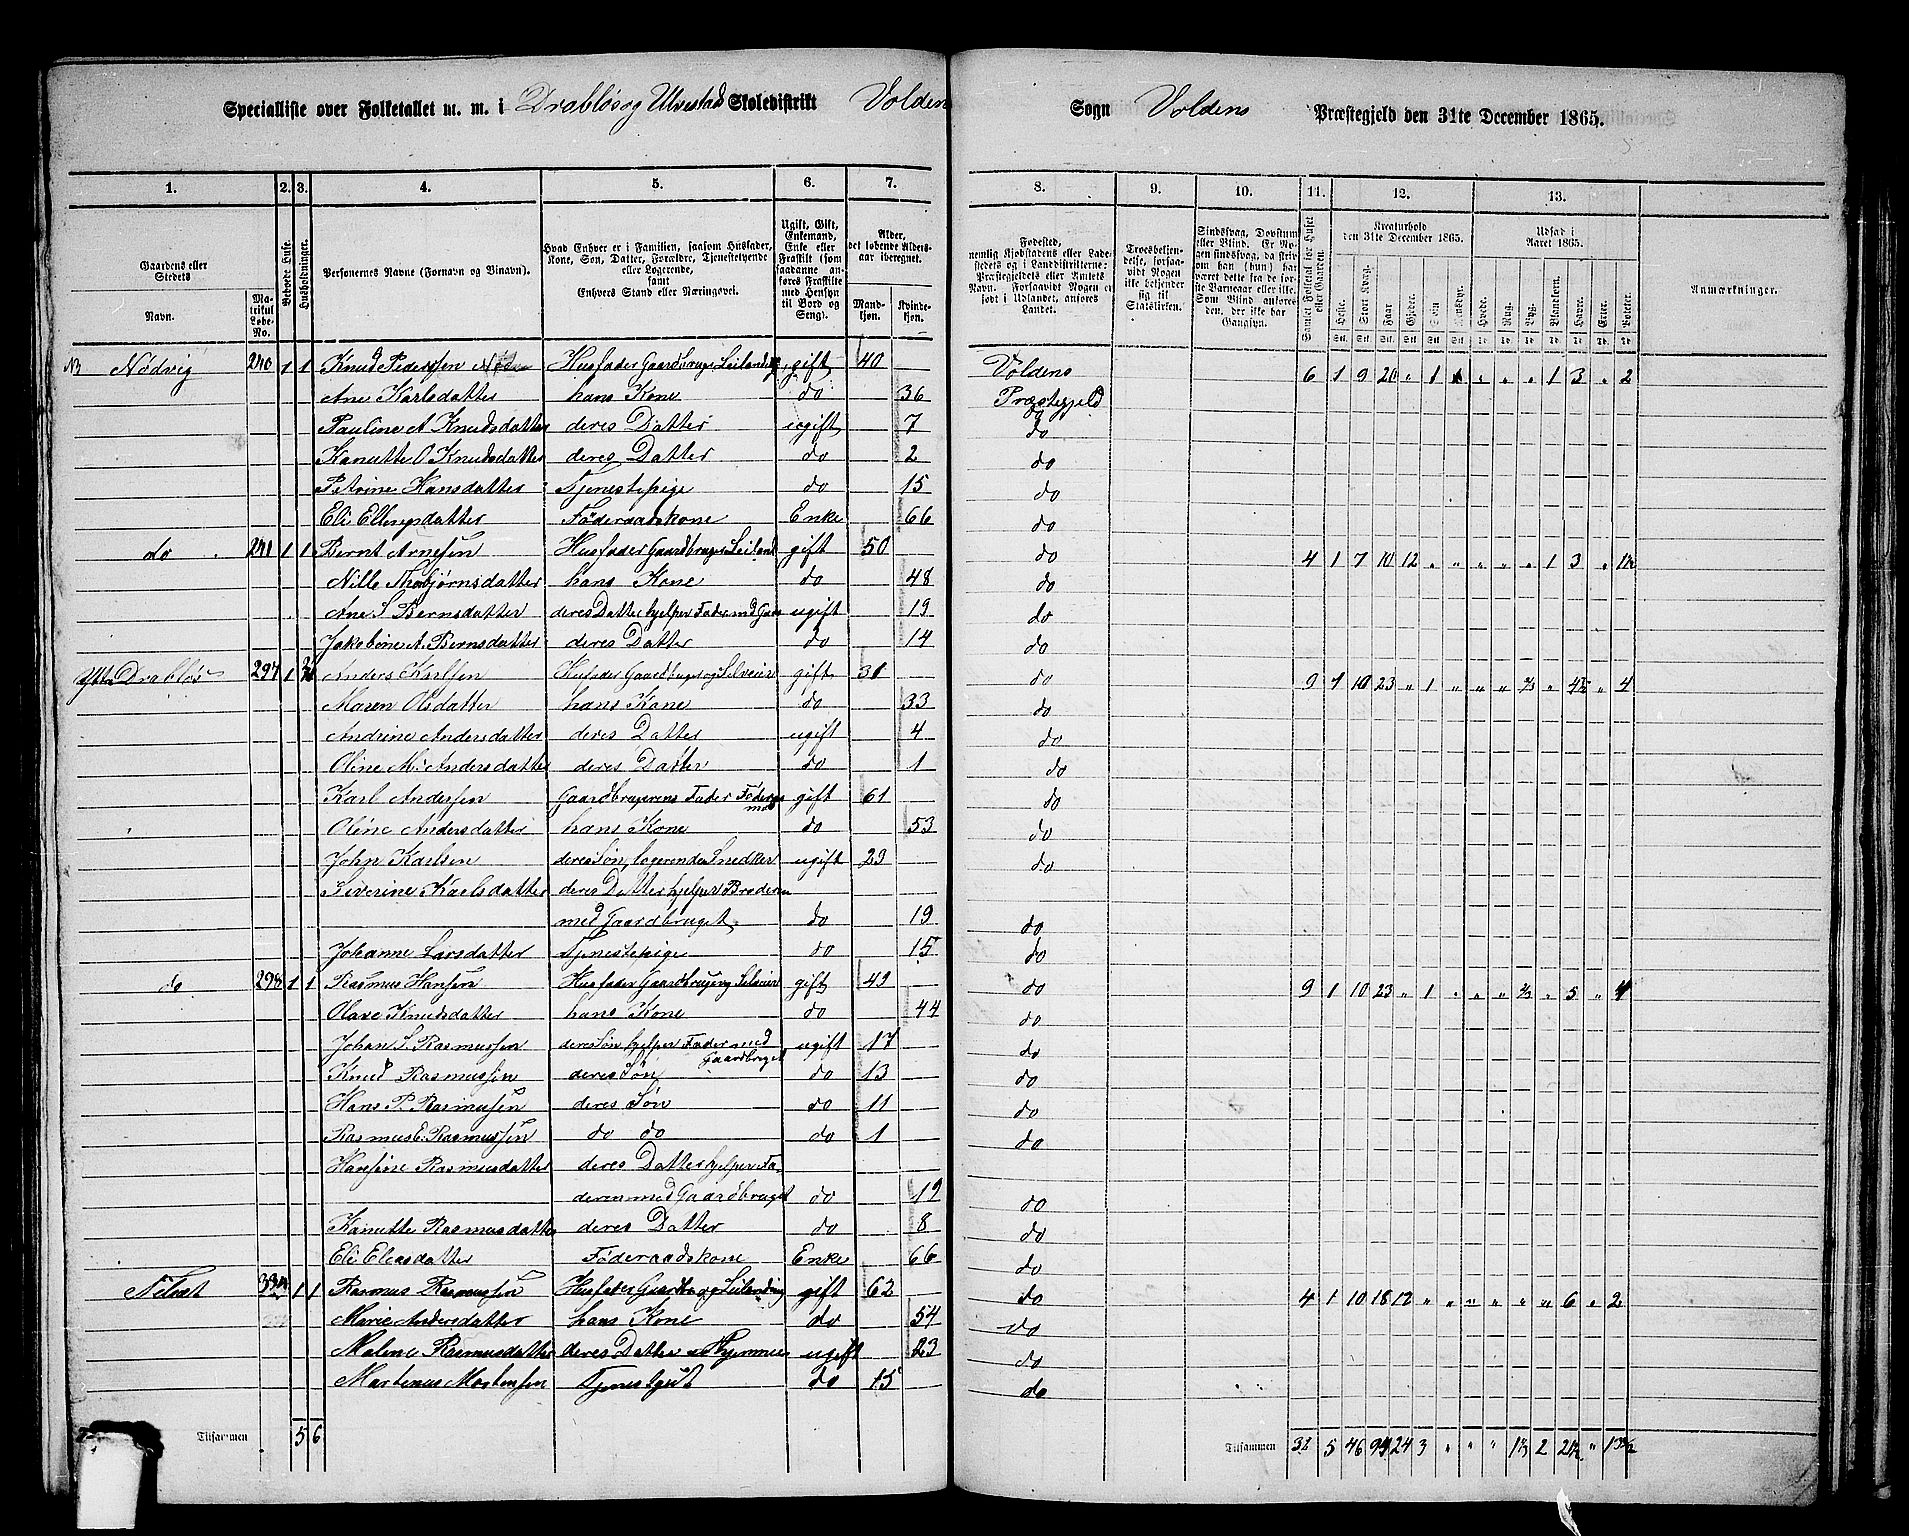 Specialliste over Folketallet m. m. i Drabløs og Ulvestad Skoledistrikt Volden Sogn Voldens Præstegjeld den 31te December 1865.
1. 2. 3. 4. 5. 6. 7. 8. 9. 10. 11. 12. 13.
Gaardens eller Stedets Navn. Matrikul Løbe-No. Bebodde Huse. Husholdninger. Personernes Navne (Fornavn og Tilnavn). Hvad Enhver er i Familien, saasom Husfader, Kone, Søn, Datter, Forældre, Tjenestetyende eller Logerende, samt Enhvers Stand eller Næringsvei. Ugift, Gift, Enkemand, Enke eller Fraskilt (som saadanne anføres Fraskilte med Hensyn til Bord og Seng). Alder, det løbende Aldersaar iberegnet. Mandkjøn. Kvindekjøn.
Fødested, nemlig Kjøbstadens eller Ladestedets og i Landdistrikterne: Præstegjeldets eller Amtets Navn. Forsaavidt Nogen er født i Udlandet, anføres Landet. Troesbekjendelse, forsaavidt Nogen ikke bekjender sig til Statskirken. Sindssvag, Døvstum eller Blind. Kreaturhold den 31te December 1865. Udsæd i Aaret 1865. Anmærkninger.
Nødvig 240 1 1 Knud Pedersen Husfader Gaardbruger Leilænding gift 40 Voldens 6 1 9 20 „ 1 „ „ „ 1 3 „ 2
Ane Karlsdatter hans Kone do 36 Præstegjeld
Pauline A Knudsdatter deres Datter ugift 7 do
Kanutte O Knudsdatter deres Datter do 2 do
Petrine Hansdatter Tjenestepige do 15 do
Eli Ellingsdatter Føderaadskone Enke 66 do
do 241 1 1 Bernt Arnesen Husfader Gaardbruger Leilænd gift 50 do 4 1 7 10 12 „ „ „ „ „ 1 3 „ 1½
Nille Thobjørnsdatter hans Kone do 48 do
Ane S Bernsdatter deres Datter hjelper Fader med Gaar ugift 19 do
Jakobine A. Bernsdatter deres Datter do 14 do
Ytre Drabløs 297 1 Anders Karlsen Husfader Gaardbruger og Selveier gift 31 do 9 1 10 23 „ 1 „ „ „ ⅔ „ 4½ „ 4
Maren Olsdatter hans Kone do 33 do
Andrine Andersdatter deres Datter ugift 4 do
Oline M. Andersdatter deres Datter do 1 do
Karl Andersen Gaardbrugerens Fader Føderaadsmand gift 61 do
Oline Andersdatter hans Kone do 53 do
John Karlsen deres Søn, logerende Snedker ugift 23 do
Severine Karlsdatter deres Datter hjelper Broderen
med Gaardbruget do 19 do
Johanne Larsdatter Tjenestepige do 15 do
do 298 1 1 Rasmus Hansen Husfader Gaardbruger og Selveier gift 49 do 9 1 10 23 „ 1 „ „ „ ⅔ „ 5 „ 4
Olave Knudsdatter hans Kone do 44 do
Johan S. Rasmussen deres Søn hjelper Fader med Gaardbruget ugift 17 do
Knud Rasmussen deres Søn do 13 do
Hans P. Rasmussen deres Søn do 11 do
Rasmus E. Rasmussen do do do 1 do
Hansine Rasmusdatter deres Datter hjelper Fa-
deren med Gaardbruget do 19 do
Kanutte Rasmusdatter deres Datter do 8 do
Eli Eliasdatter Føderaadskone Enke 66 do
1 1 Rasmus Rasmussen Husfader Gaardbr og Leilænding gift 62 do 4 1 10 18 12 „ „ „ „ „ „ 6 „ 2
Marie Andersdatter hans Kone do 54 do
Malene Rasmusdatter deres Datter ugift 23 do
Martinus Mortensen Tjenestgut do 15 do
Tilsammen 5 6 Tilsammen 32 5 46 94 24 3 „ „ „ 1⅓ 2 21½ „ 13½